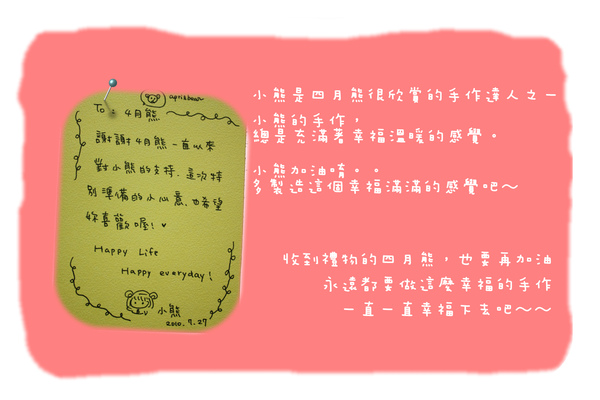 aprilbear
To : 4月熊
謝謝4月熊一直以來
對小熊的支持. 這次特
別準備的小心意. 也希望
妳喜歡喔! ♥
Happy Life
Happy everyday!
By 小熊
2010.7.27
小熊是四月熊很欣賞的手作達人之一
小熊的手作，
總是充滿著幸福溫暖的感覺。
小熊加油唷。。
多製造這個幸福滿滿的感覺吧～
收到禮物的四月熊，也要再加油
永遠都要做這麼幸福的手作
一直一直幸福下去吧～～